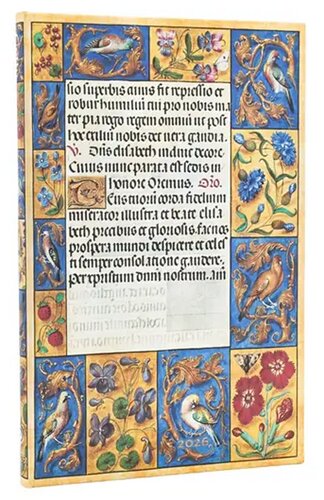 sio superbis auus fit repressio et
robur humiliū cui pro nobis ma
ter pia rego regem omniū ut post
hoc exiliū nobis det uera gaudia.
V. Dñs elisabeth induit decore
Cuius nunc parata est sedis in
honore Oremus. Oro.
Tuorū corda fidelium
miserator illustra et beate elisa
beth precibus et gloriosis. fac nos
prospera mundi despicere et celes
ti semper consolatione gaudere.
per xpristum dnūm nostrum. am
2026